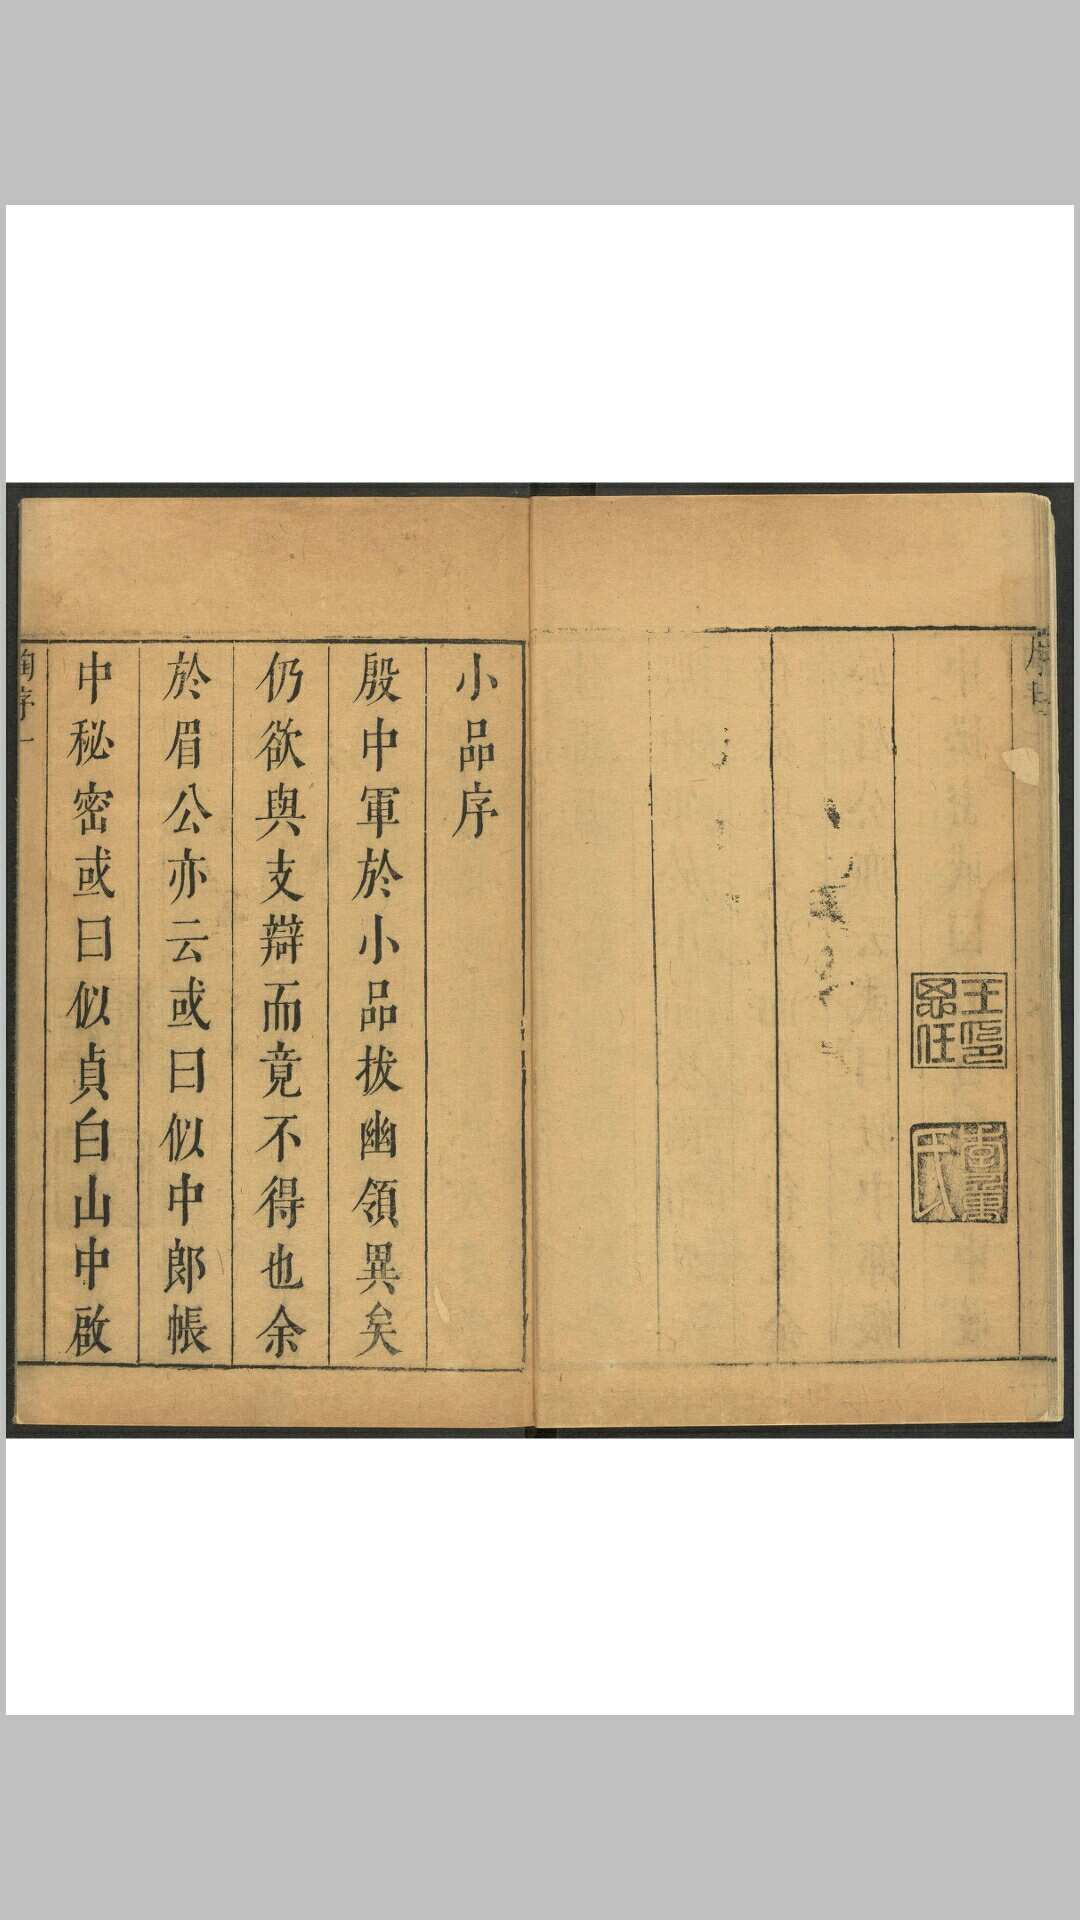 王印
思任
小品序
殷中軍於小品拔幽領異矣
仍欲與支辯而竟不得也余
於眉公亦云或曰似中郎帳
中秘密或曰似貞白山中啟